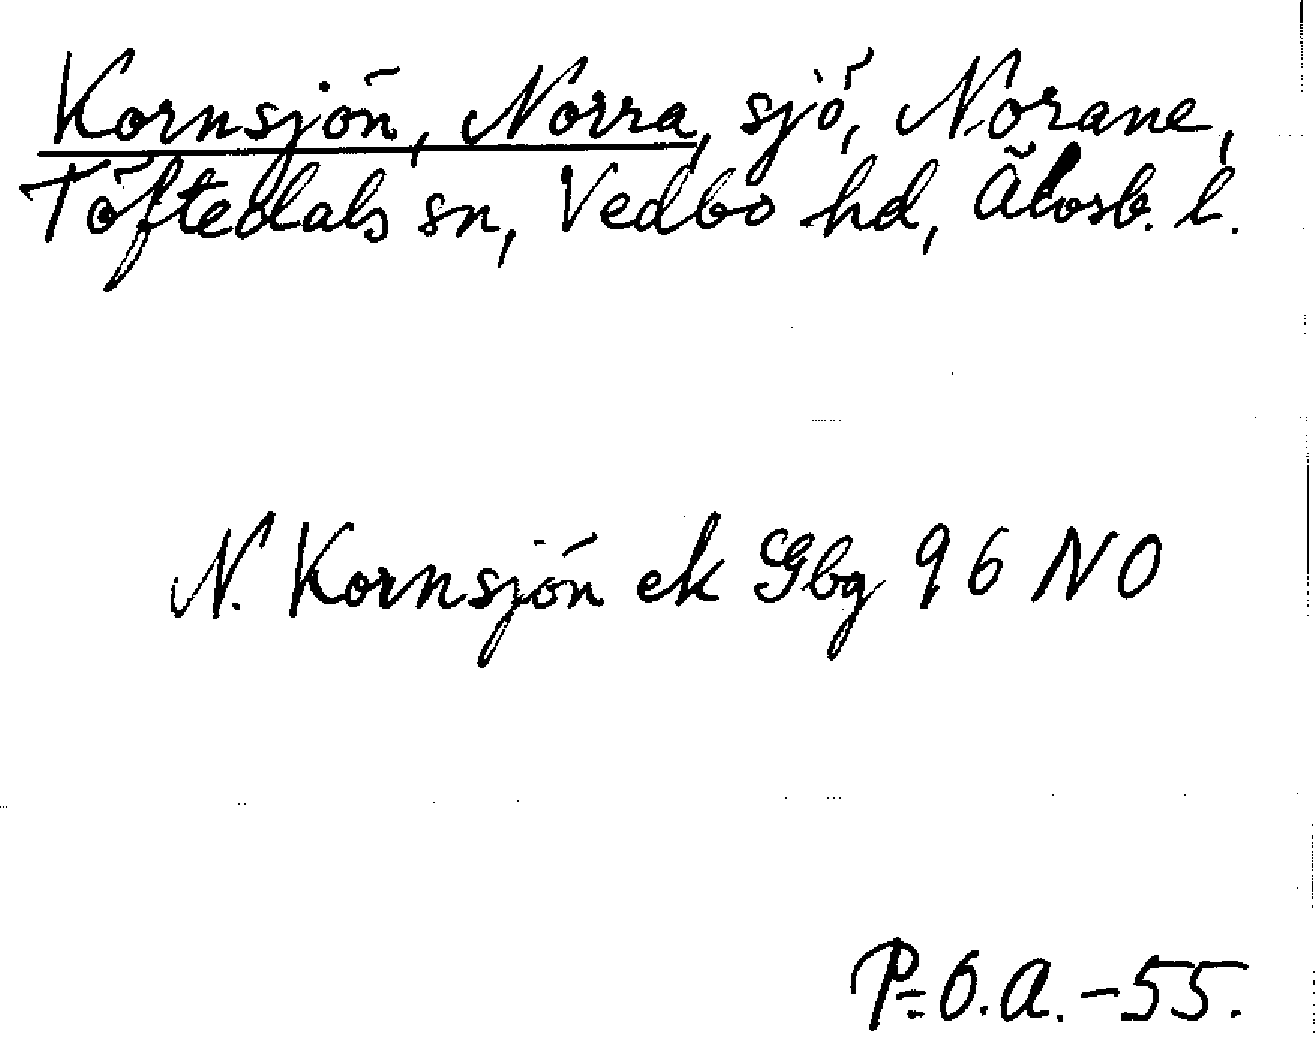 Kornsjön, Norra, sjö, Nörane,
Töftedals sn, Vedbo hd, Älvsb. l.
N. Kornsjön ek Gbg 96 NO
P:O.A. -55.